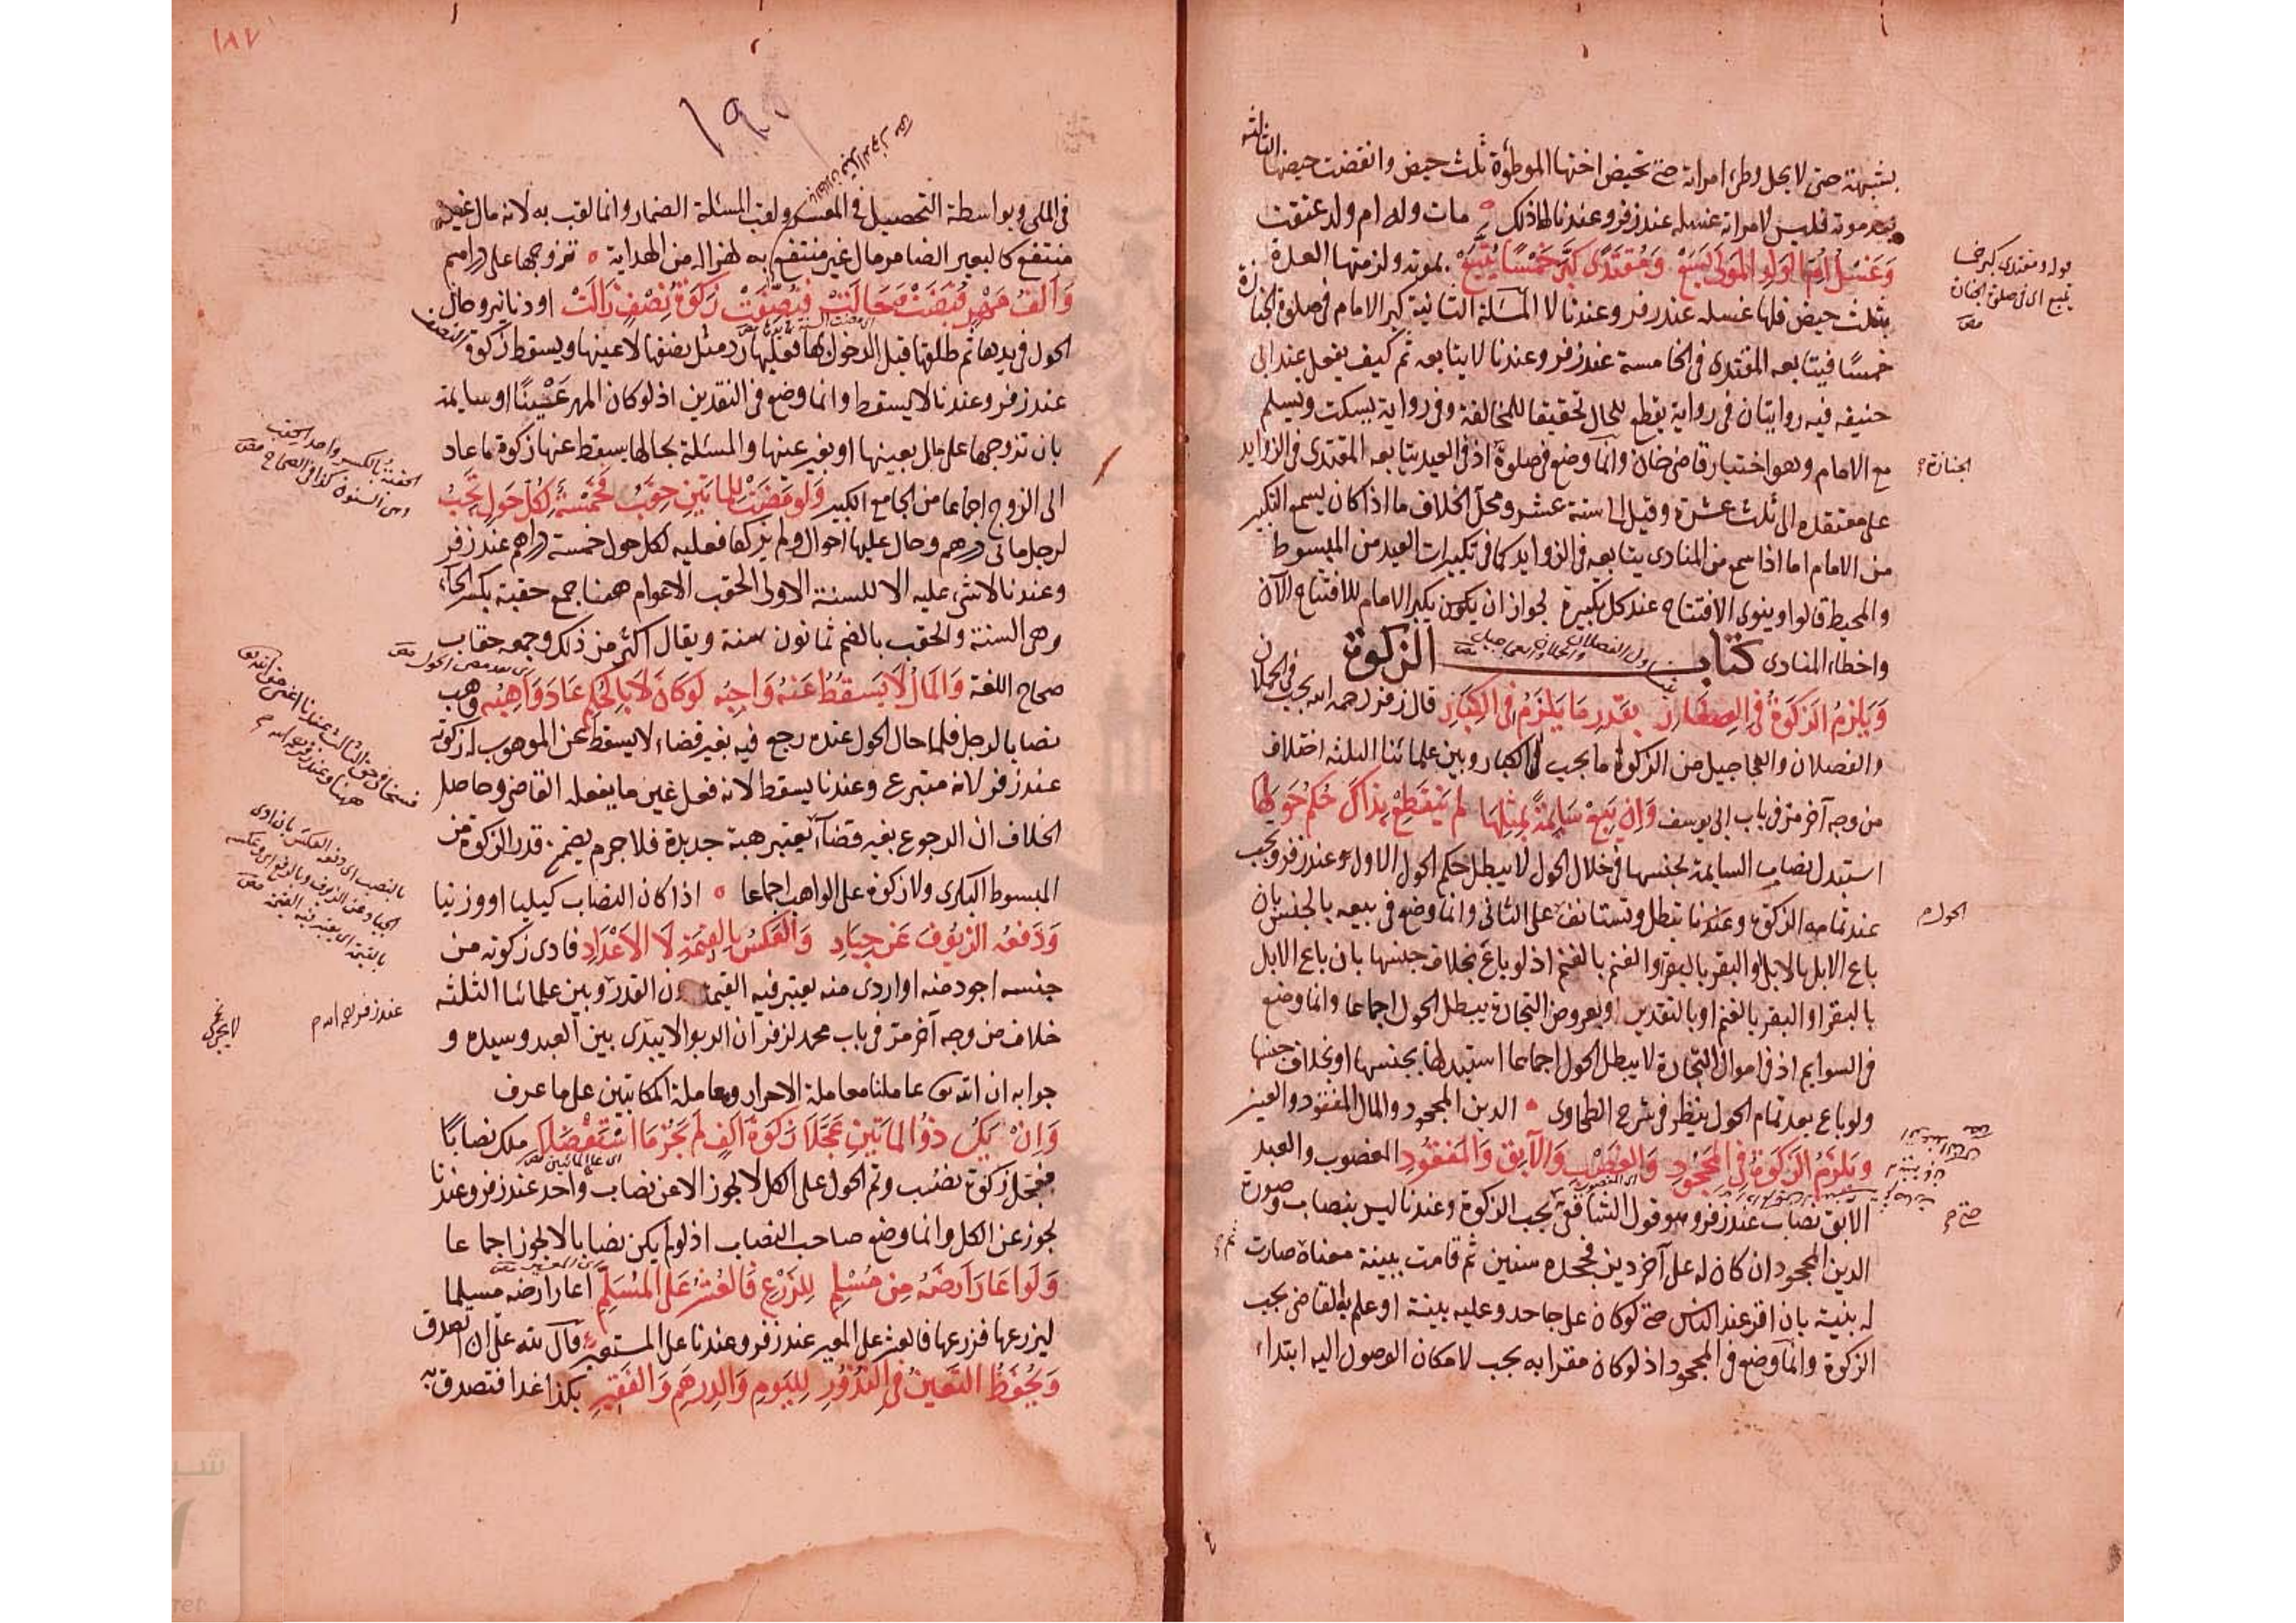 بشبهة حتى لا يحل وطئ امراته حتى تحيض اختها الموطؤة ثلث حيض وانقضت حيضها الثالثة
بعد موته فليس لامراته غسله عند زفر وعندنا لها ذلك مات وله ام ولد عتقت
وَغسل ام الولد المولى يسع ومقتدى كبر خمسا يتبع بموته ولزمتها العدة
بثلث حيض فلها غسله عند زفر وعندنا لا المسئلة الثانية كبر الامام في صلوة الجنازة
خمسًا فيتابعه المقتدى في الخامسة عند زفر وعندنا لا يتابعه ثم كيف يفعل عند ابى
حنيفه فيه روايتان في رواية يقطع للحال تحقيقا للمخالفة وفي رواية يسكت ويسلم
مع الامام وهو اختيار قاضي خان وانما وضع في صلوة اذ في العيد يتابعه المقتدى في الزوايد
الجنازة
على معتقده الى ثلث عشرة وقيل الى ستة عشر ومحل الخلاف ما اذا كان يسمع التكبير
من الامام اما اذا سمع من المنادى يتابعه في الزوايد كما في تكبيرات العيد من المبسوط
والمحيط قالوا وينوى الافتتاح عند كل تكبيرة لجواز ان يكون تكبير الامام للافتتاح الآن
واخطاء المنادى كتاب الزكوة
وَيلزم الزكوة في الصغار بقدر ما يلزم في الكبار قال زفر رحمه الله يجب في الحملان
والفصلان والعجاجيل من الزكوة ما يجب في الكبار وبين علمائنا الثلثه اختلاف
من وجه آخر مر في باب ابى يوسف وان يبع سايمة بمثلها لم ينقطع بذاك حكم حولها
استبدل نصاب السايمة بجنسها في خلال الحول لا يبطل حكم الحول الاول عند زفر ويجب
عند تمامه الزكوة وعندنا تبطل وتستانف على الثانى وانما وضع في بيعه بالجنس بان
الحول
باع الابل بالابل او البقر بالبقر او الغنم بالغنم اذ لو باع بخلاف جنسها بان باع الابل
بالبقر او البقر بالغنم او بالنقدين او بعروض التجارة يبطل الحول اجماعا وانما وضع
في السوايم اذ في اموال التجارة لا يبطل الحول اجماعا استبدلها بجنسها او بخلاف جنسها
ولو باع بعد تمام الحول ينظر في شرح الطحاوى الدين المجحود والمال المفقود والعين
ويلزم الزكوة في المجحود والغصب والآبق والمفقود المغصوب والعبد
الآبق نصاب عند زفر وهو قول الشافعى يجب الزكوة وعندنا ليس بنصاب وصورة
الدين المجحود ان كان له على آخر دين فجحده سنين ثم قامت ببينة معناه صارت
له بنية بان اقر عند الناس حتى لو كان على جاحد وعليه بينة او علم به القاضى يجب
الزكوة وانما وضع في المجحود اذ لو كان مقرا به يجب لامكان الوصول اليه ابتداء
١٨٧
في الملى وبواسطة التحصيل في المعسر ولقب المسئلة الضمار وانما لقب به لانه مال غير
منتفع كالبعير الضامر مال غير منتفع به لهزاله من الهداية تزوجها على دراهم
وَالف مهر قبضت فحالت فنصفت زكوة نصف زالت او دنانير وحال
الحول في يدها ثم طلقها قبل الدخول بها فعليها رد مثل نصفها لا عينها ويسقط زكوة النصف
عند زفر وعندنا لا يسقط وانما وضع في النقدين اذ لو كان المهر عينا او سايمة
بان تزوجها على ابل بعينها او بغير عينها والمسئلة بحالها يسقط عنها زكوة ما عاد
الى الزوج اجماعا من الجامع الكبير ولو مضت للمأتين حقب فخمسة لكل حول تجب
لرجل مائتى درهم وحال عليها احوال ولم يزكها فعليه لكل حول خمسة دراهم عند زفر
الحقبة بالكسر واحد الحقب
وهى السنون كذا في الصحاح
وعندنا لا شئ عليه الا للسنة الاولى الحقب الاعوام ههنا جمع حقبة بكسر الحاء
وهى السنة والحقب بالضم ثمانون سنة ويقال اكثر من ذلك وجمعه حقاب
صحاح اللغة والمال لا يسقط عنه واجبه لو كان لا بالحكم عاد واهبه وهب
نصابا لرجل فلما حال الحول عنده رجع فيه بغير قضاء لا يسقط عن الموهوب له زكوته
عند زفر لانه متبرع وعندنا يسقط لانه فعل غير ما يفعله القاضى وحاصل
الخلاف ان الرجوع بغير قضاء يعتبر هبة جديدة فلا جرم يضمن قدر الزكوة من
المبسوط البكرى ولا زكوة على الواهب اجماعا اذا كان النصاب كيليا او وزنيا
وَدفعه الزيوف عن جياد والعكس بالقيمة لا الاعداد فادى زكوته من
جنسه اجود منه او اردى منه يعتبر فيه القيمة دون القدر وبين علمائنا الثلثه
عند زفر رحمه الله
خلاف من وجه آخر مر في باب محمد لزفر ان الربوا لا يجرى بين العبد وسيده و
جوابه ان الله تعالى عاملنا معاملة الاحرار ومعاملة المكاتبين على ما عرف
وَان يكن ذو المأتين عجلا زكوة الف لم يجز ما استفضلا ملك نصابًا
فعجل زكوة نصب وتم الحول على الكل لا يجوز الا عن نصاب واحد عند زفر وعندنا
يجوز عن الكل وانما وضع صاحب النصاب اذ لو لم يكن نصابا لا يجوز اجماعا
وَلو اعار ارضه من مسلم للزرع فالعشر على المسلم اعار ارضه مسلما
ليزرعها فزرعها فالعشر على المعير عند زفر وعندنا على المستعير قال لله على ان اتصدق
ويحفظ التعيين في النذور لليوم والدرهم والفقير بكذا غدا فتصدق به